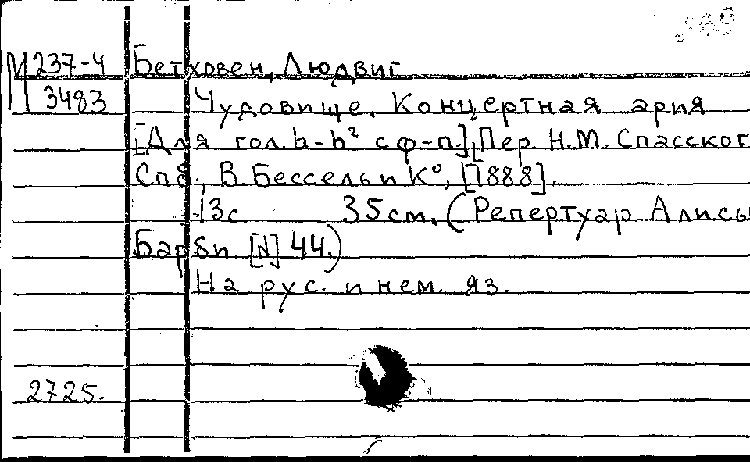 М 237-4 Бетховен, Людвиг
3483 Чудовище. Концертная ария
[Для гол. h-h² с ф-п.] Пер. Н.М. Спасског
Спб., В. Бессель и К°, [1888].
13с 35см. (Репертуар Алисы
Барби [N] 44.)
На рус. и нем. яз.
2725.